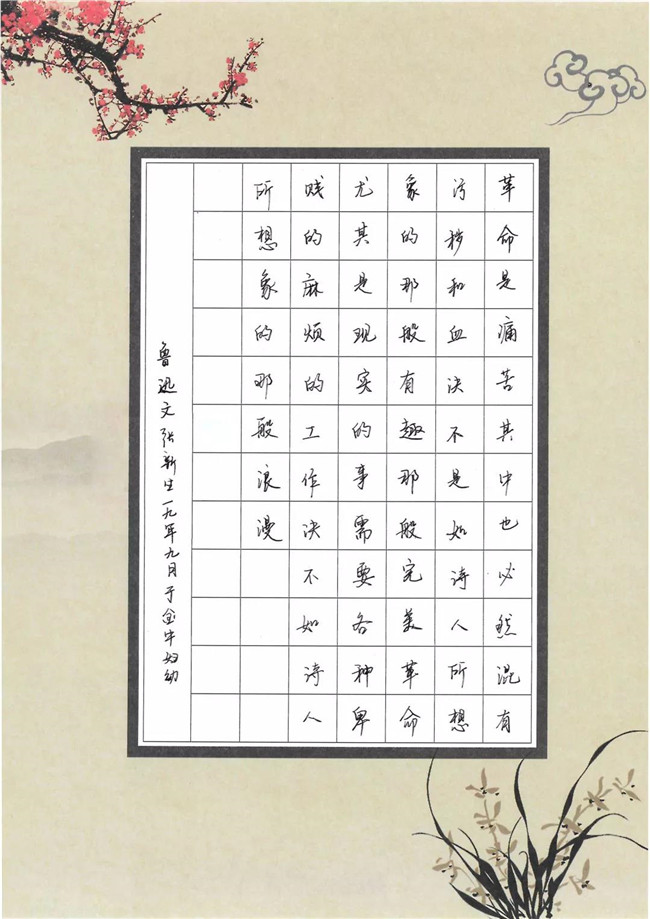 革命是痛苦其中也必然混有
污秽和血决不是如诗人所想
象的那般有趣那般完美革命
尤其是现实的事需要各种卑
贱的麻烦的工作决不如诗人
所想象的那般浪漫
鲁迅文张新生一九年九月于金牛妇幼